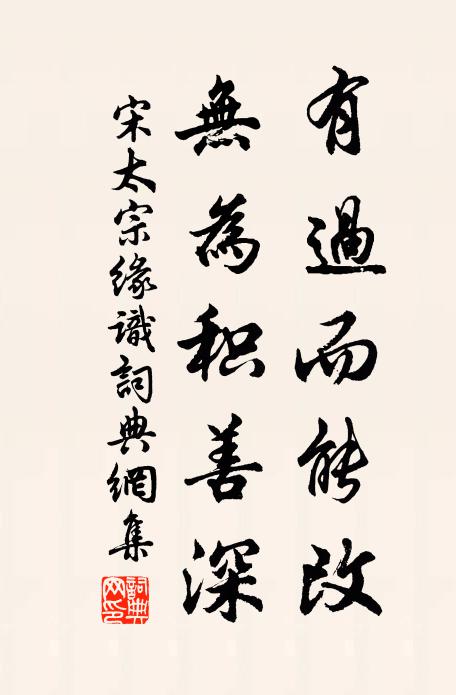 有過而能改
無為积善深
宋太宗缘識詞典網集
詞典網印